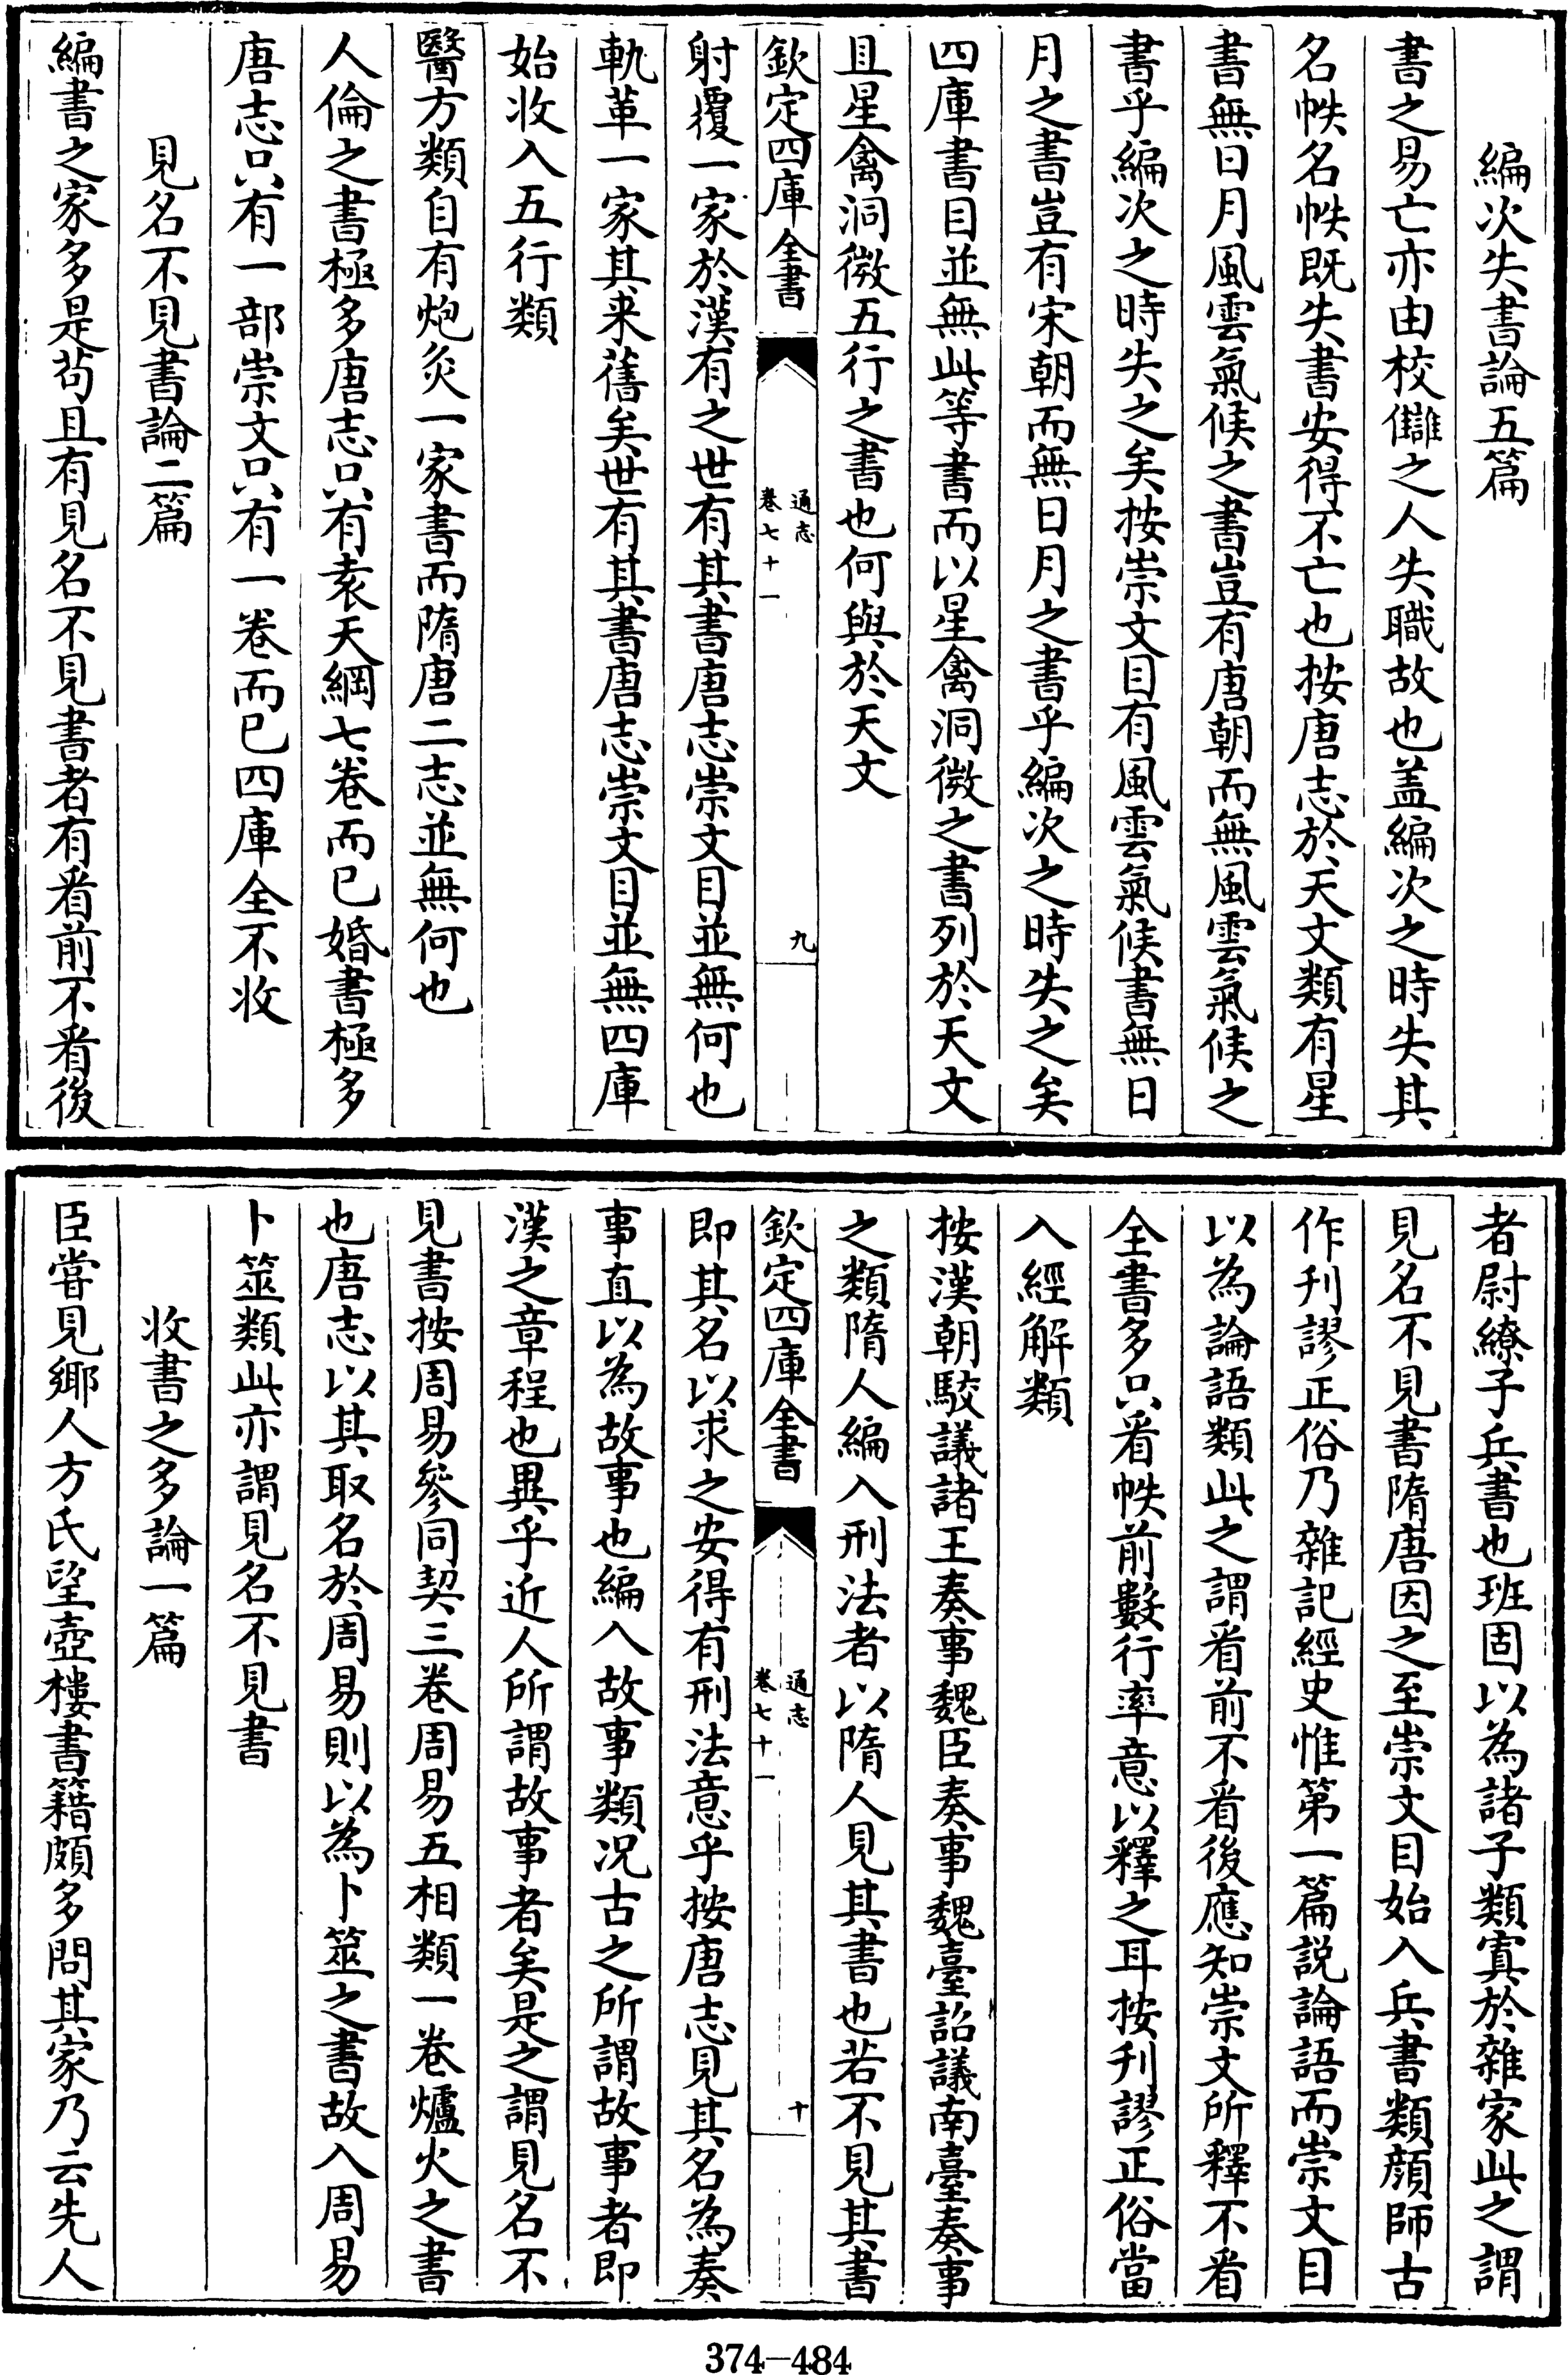 編次失書論五篇
書之易亡亦由校讎之人失職故也盖編次之時失其
名帙名帙既失書安得不亡也按唐志於天文類有星
書無日月風雲氣候之書豈有唐朝而無風雲氣候之
書乎編次之時失之矣按崇文目有風雲氣候書無日
月之書豈有宋朝而無日月之書乎編次之時失之矣
四庫書目並無此等書而以星禽洞微之書列於天文
且星禽洞微五行之書也何與於天文
欽定四庫全書
通志
卷七十一
九
射覆一家於漢有之世有其書唐志崇文目並無何也
軌革一家其来舊矣世有其書唐志崇文目並無四庫
始收入五行類
醫方類自有炮灸一家書而隋唐二志並無何也
人倫之書極多唐志只有袁天綱七卷而已婚書極多
唐志只有一部崇文只有一卷而已四庫全不收
見名不見書論二篇
編書之家多是苟且有見名不見書者有看前不看後
者尉繚子兵書也班固以為諸子類寘於雜家此之謂
見名不見書隋唐因之至崇文目始入兵書類顔師古
作刋謬正俗乃雜記經史惟第一篇說論語而崇文目
以為論語類此之謂看前不看後應知崇文所釋不看
全書多只看帙前數行率意以釋之耳按刋謬正俗當
入經解類
按漢朝駮議諸王奏事魏臣奏事魏臺詔議南臺奏事
之類隋人編入刑法者以隋人見其書也若不見其書
欽定四庫全書
通志
卷七十一
十
即其名以求之安得有刑法意乎按唐志見其名為奏
事直以為故事也編入故事類況古之所謂故事者即
漢之章程也異乎近人所謂故事者矣是之謂見名不
見書按周易參同契三卷周易五相類一卷爐火之書
也唐志以其取名於周易則以為卜筮之書故入周易
卜筮類此亦謂見名不見書
收書之多論一篇
臣嘗見鄉人方氏望壺樓書籍頗多問其家乃云先人
374-484